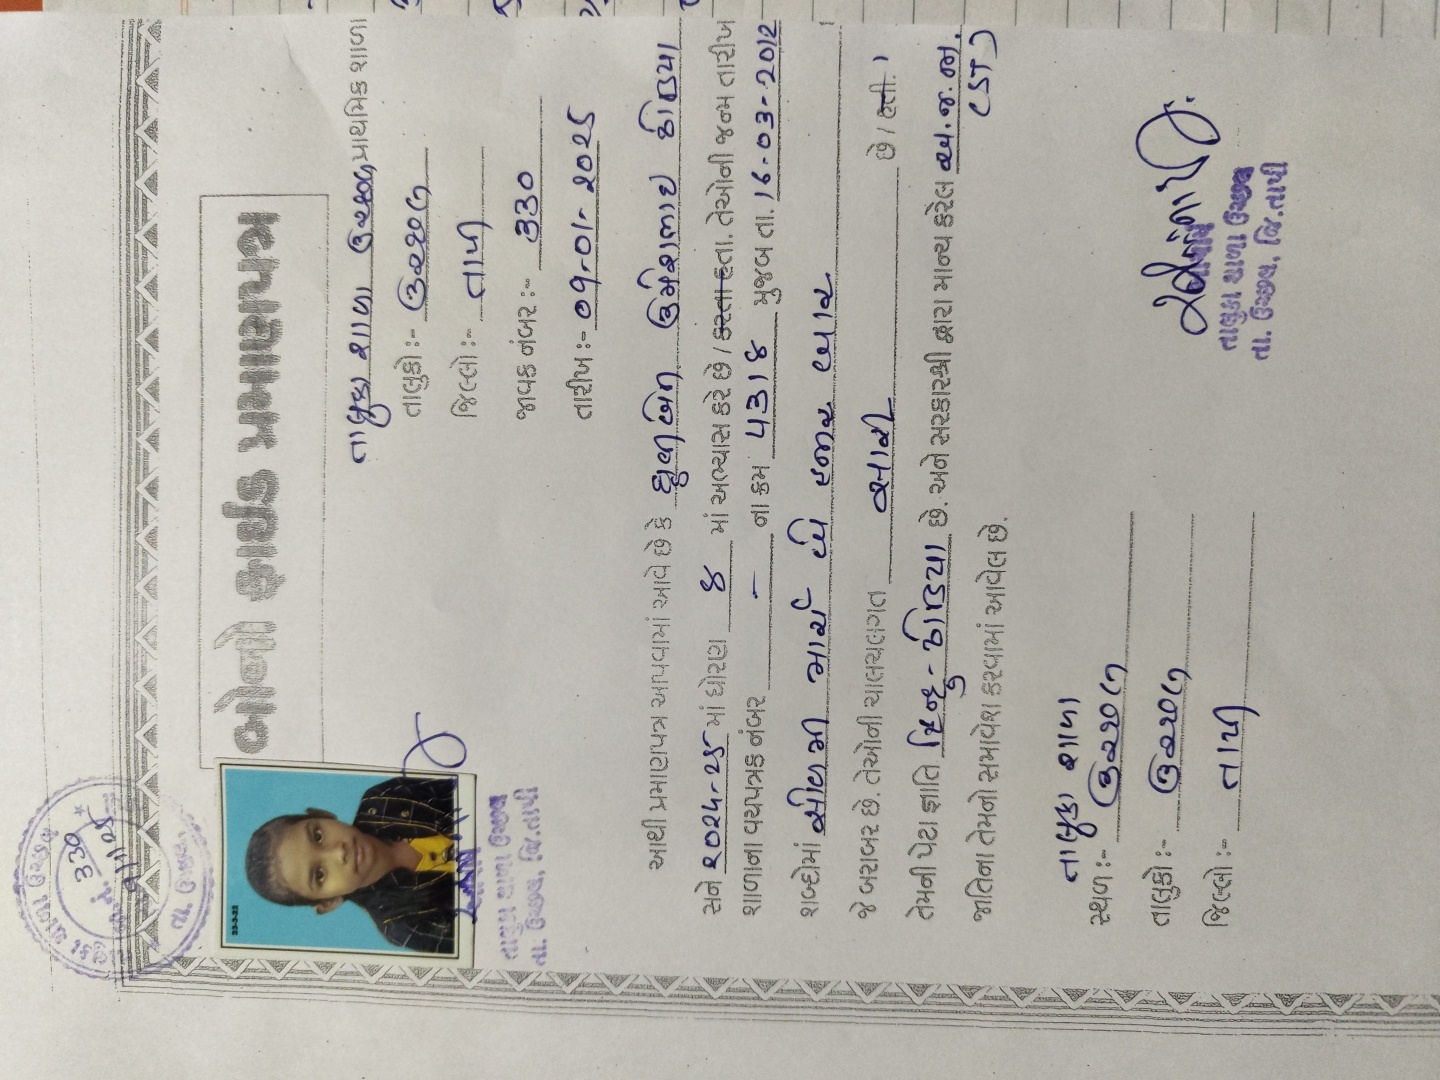 બોનોફાઈડ પ્રમાણપત્ર
તાલુકા શાળા ઉચ્છલ પ્રાથમિક શાળા
તાલુકો :- ઉચ્છલ
જિલ્લો :- તાપી
જાવક નંબર :- 330
તારીખ :- 09-01-2025
આથી પ્રમાણપત્ર આપવામાં આવે છે કે ઉમેશભાઇ
સને ૨૦૨૪-૨૫ માં ધોરણ ૪ માં અભ્યાસ કરે છે / કરતા હતા. તેઓની જન્મ તારીખ
શાળાના વયપત્રક નંબર - ના ક્રમ ૫૩૧૪ મુજબ તા. 16-03-2012
શબ્દોમાં સોળમી માર્ચ બે હજાર બાર
જે બરાબર છે. તેઓની ચાલચલગત સારી છે / હતી.
તેમની પેટા જ્ઞાતિ હિન્દુ - છે. અને સરકારશ્રી દ્વારા માન્ય કરેલ અ.જ.જા.
(ST)
જાતિના તેમનો સમાવેશ કરવામાં આવેલ છે.
તાલુકા શાળા
સ્થળ :- ઉચ્છલ
તાલુકો :- ઉચ્છલ
જિલ્લો :- તાપી
તાલુકા શાળા ઉચ્છલ
તા. ઉચ્છલ, જિ. તાપી
તાલુકા શાળા ઉચ્છલ
તા. ઉચ્છલ, જિ. તાપી
330